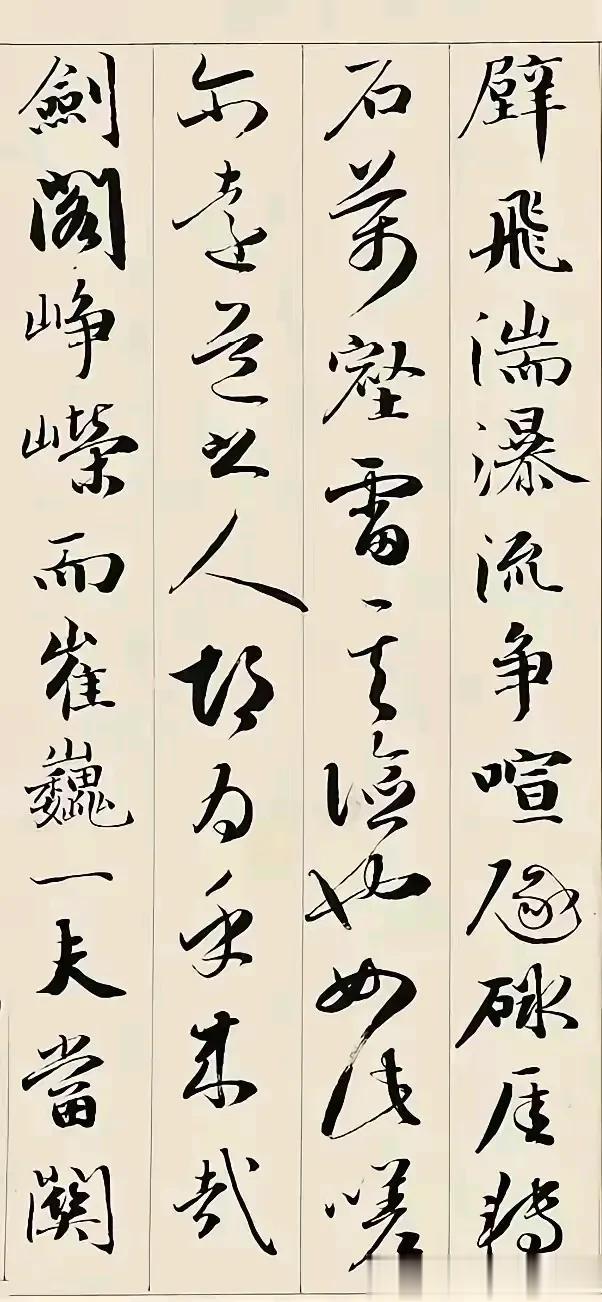 壁飛湍瀑流争喧豗砯厓轉
石萬壑雷其險也如此嗟
尔遠道之人胡为乎来哉
劍閣崢嶸而崔巍一夫當關